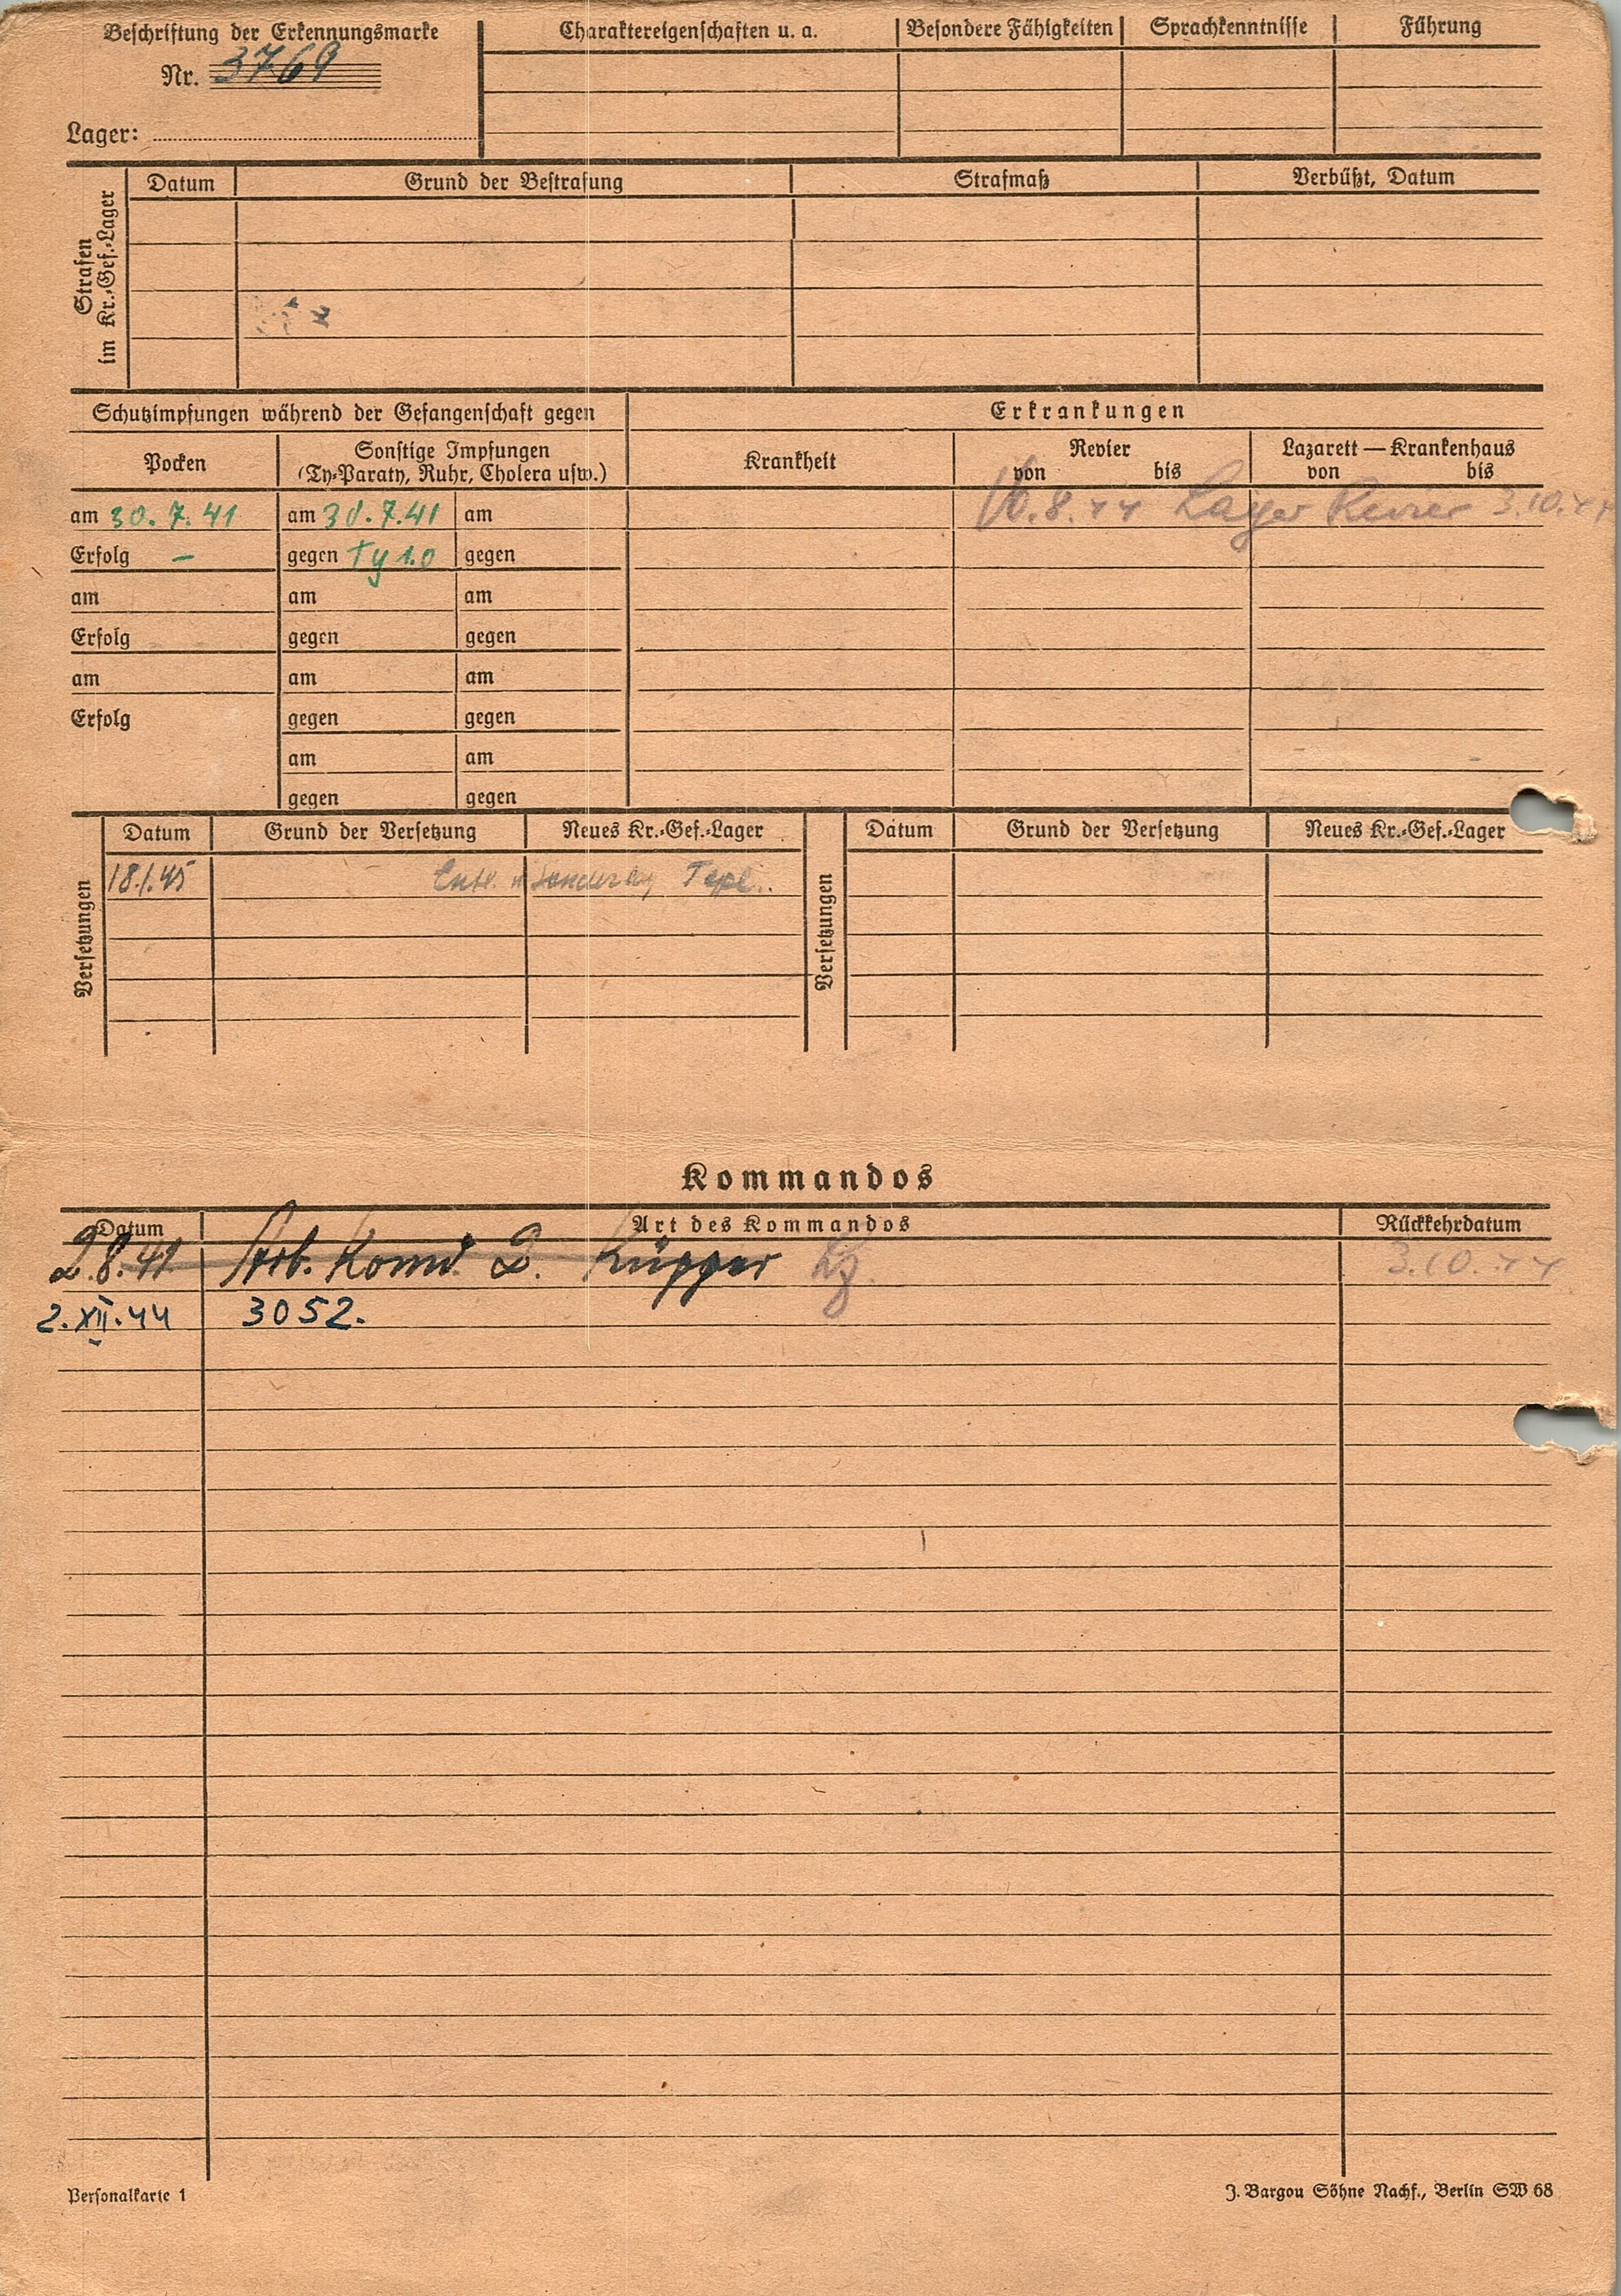 Beschriftung der Erkennungsmarke
Nr. 3769
Lager:
Charaktereigenschaften u. a.
Besondere Fähigkeiten
Sprachkenntnisse
Führung
Strafen im Kr.-Gef.-Lager
Datum
Grund der Bestrafung
Strafmaß
Verbüßt, Datum
Schutzimpfungen während der Gefangenschaft gegen
Erkrankungen
Pocken
Sonstige Impfungen
(Ty-Paraty, Ruhr, Cholera usw.)
Krankheit
Revier
von bis
Lazarett — Krankenhaus
von bis
am 30.7.41 am 30.7.41 am
.8.44 Lager Revier 3.10.44
Erfolg – gegen Ty 1.0 gegen
am am am
Erfolg gegen gegen
am am am
Erfolg gegen gegen
am am
gegen gegen
Versetzungen
Datum Grund der Versetzung Neues Kr.-Gef.-Lager
18.1.45
Versetzungen
Datum Grund der Versetzung Neues Kr.-Gef.-Lager
Kommandos
Datum Art des Kommandos Rückkehrdatum
2.8.41 Arb. Komd 2. Küpper 3.10.44
2.XII.44 3052.
Personalkarte 1
J. Bargou Söhne Nachf., Berlin SW 68